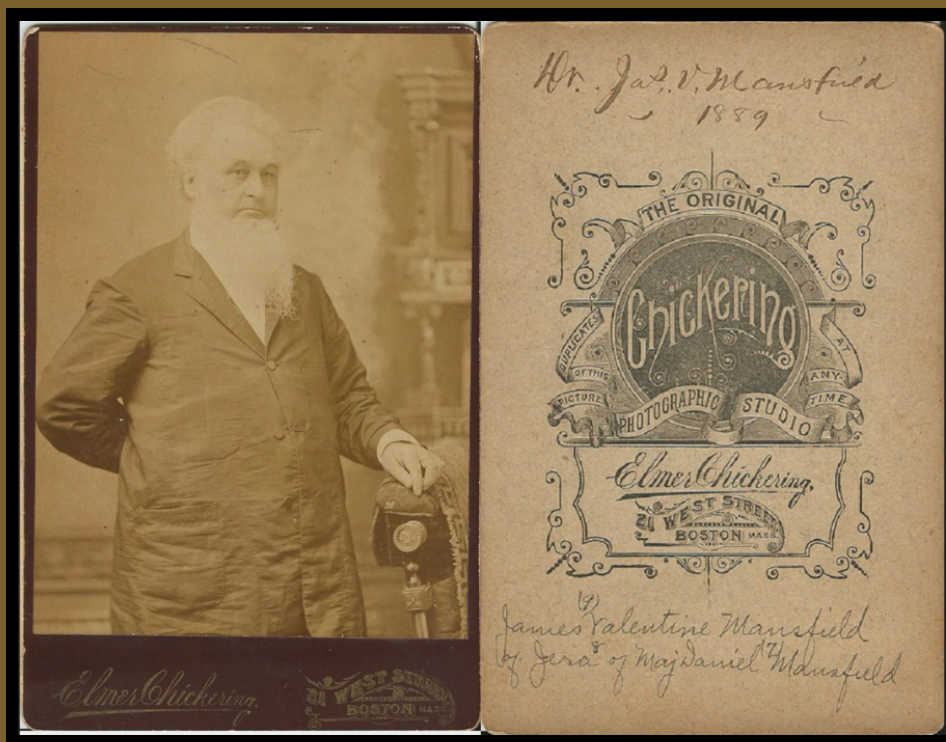 Elmer Chickering,
21 WEST STREET
BOSTON MASS.
Dr. Jas. V. Mansfield
1889
THE ORIGINAL
Chickering
PHOTOGRAPHIC STUDIO
DUPLICATES OF THIS PICTURE
AT ANY TIME
Elmer Chickering,
21 WEST STREET
BOSTON MASS.
(9)
James Valentine Mansfield
of Jera 8 of Maj Daniel 7 Mansfield